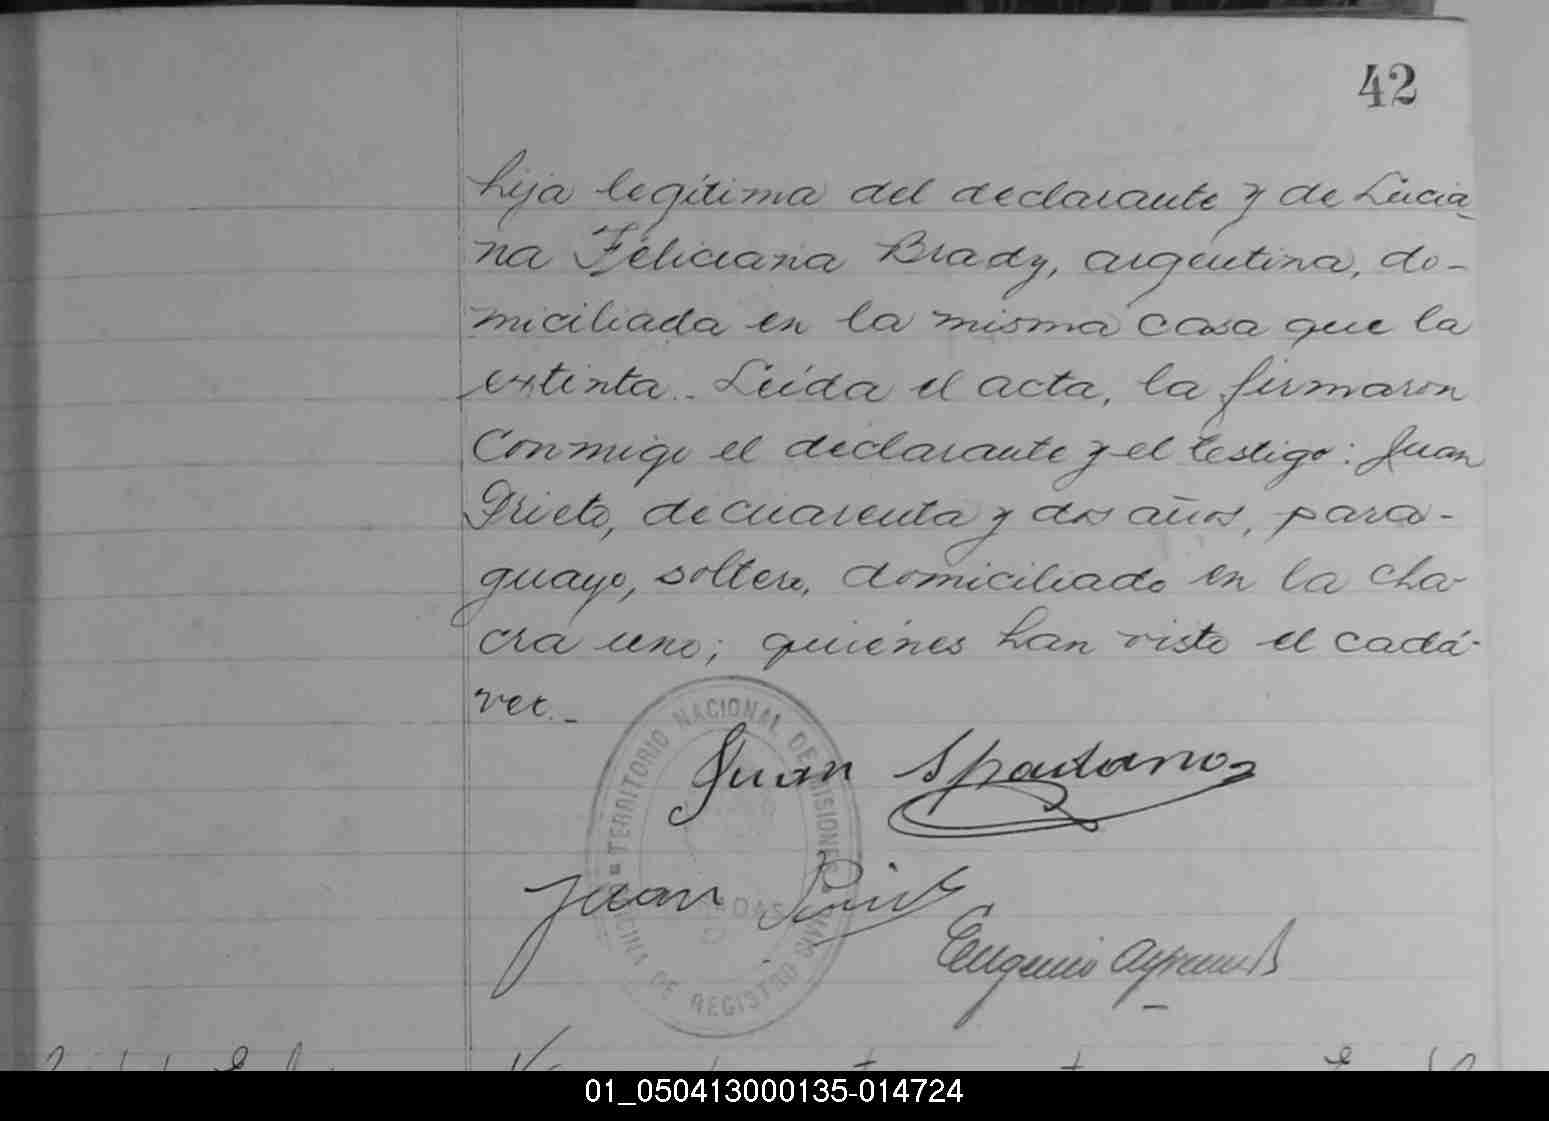 42
hija legítima del declarante y de Lucia
na Feliciana Brady, argentina, do-
miciliada en la misma casa que la
extinta.. Leída el acta, la firmaron
conmigo el declarante y el testigo: Juan
Prieto, de cuarenta y dos años, para-
guayo, soltero, domiciliado en la cha-
cra uno; quiénes han visto el cadá-
ver._
TERRITORIO NACIONAL DE MISIONES
OFICINA DE REGISTRO
Juan Spadano
Juan
Eugenio
01_050413000135-014724